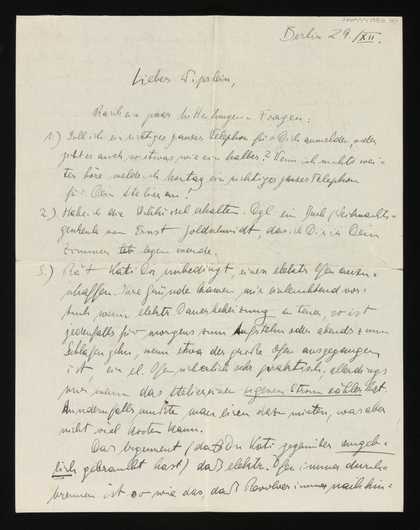 Berlin 29./XII.
Lieber Wipslein,
Rasch ein paar Mitteilungen u. Fragen:
1.) Soll ich ein richtiges ganzes Telephon für Dich anmelden, oder
gibt es auch so etwas wie ein halbes? Wenn ich nichts wei-
ter höre, melde ich Montag ein richtiges ganzes Telephon
für Dein Atelier an!
2.) Habe ich die erhalten. Dgl. ein Buch (Weihnachts-
geschenk von Ernst Goldschmidt, das ich Dir in Dein
Zimmer legen werde.
3.) Rät Kati Dir unbedingt, einen elektr. Ofen anzu-
schaffen. Ihre Gründe kamen mir einleuchtend vor:
Auch wenn elektr. Dauerheizung zu teuer, so ist
jedenfalls für morgens zum Aufstehn oder abends zum
Schlafen gehn, wenn etwa der große Ofen ausgegangen
ist, ein el. Ofen sehr praktisch, allerdings
nur, wenn das Atelier einen eigenen Strom zähler hat.
Andernfalls müßte man einen dazu mieten, was aber
nicht viel kosten kann.
Das Argument (daß Du Kati gegenüber angeb-
lich gebraucht hast) daß elektr. Öfen immer durch-
brennen ist so wie das, daß Revolver immer nach hin-